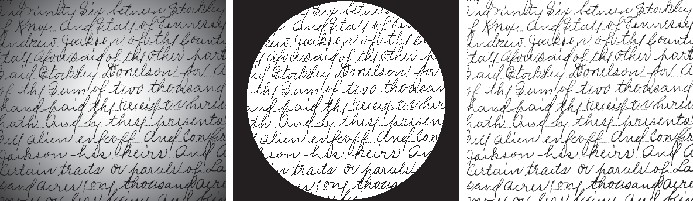 and ninety Six between Stockley
of Knox and Stat of Tennessee
Andrew Jackson of the Count
aforesaid of the other part
said Stockley Donelson for A
of the Sum of two thousand
hand paid the receipt where
hath And by these presents
d alien enfeoff And Confir
Jackson his heirs And A
certain traits or parcels of La
sand acres thousand acre
Six between
and Stat of
Jackson of the
aforesaid of the other
Stockley Donelson for
of the Sum of two thousan
hand paid the receipt wher
hath And by these presents
alien enfeoff And Con
Jackson his heirs And
traits or parcels
thous
and ninety Six between Stockley
of Knox and Stat of Tennessee
Andrew Jackson of the Count
aforesaid of the other part
said Stockley Donelson for A
of the Sum of two thousand
hand paid the receipt where
hath And by these presents
d alien enfeoff And Confir
Jackson his heirs And A
certain traits or parcels of La
sand acres thousand acre